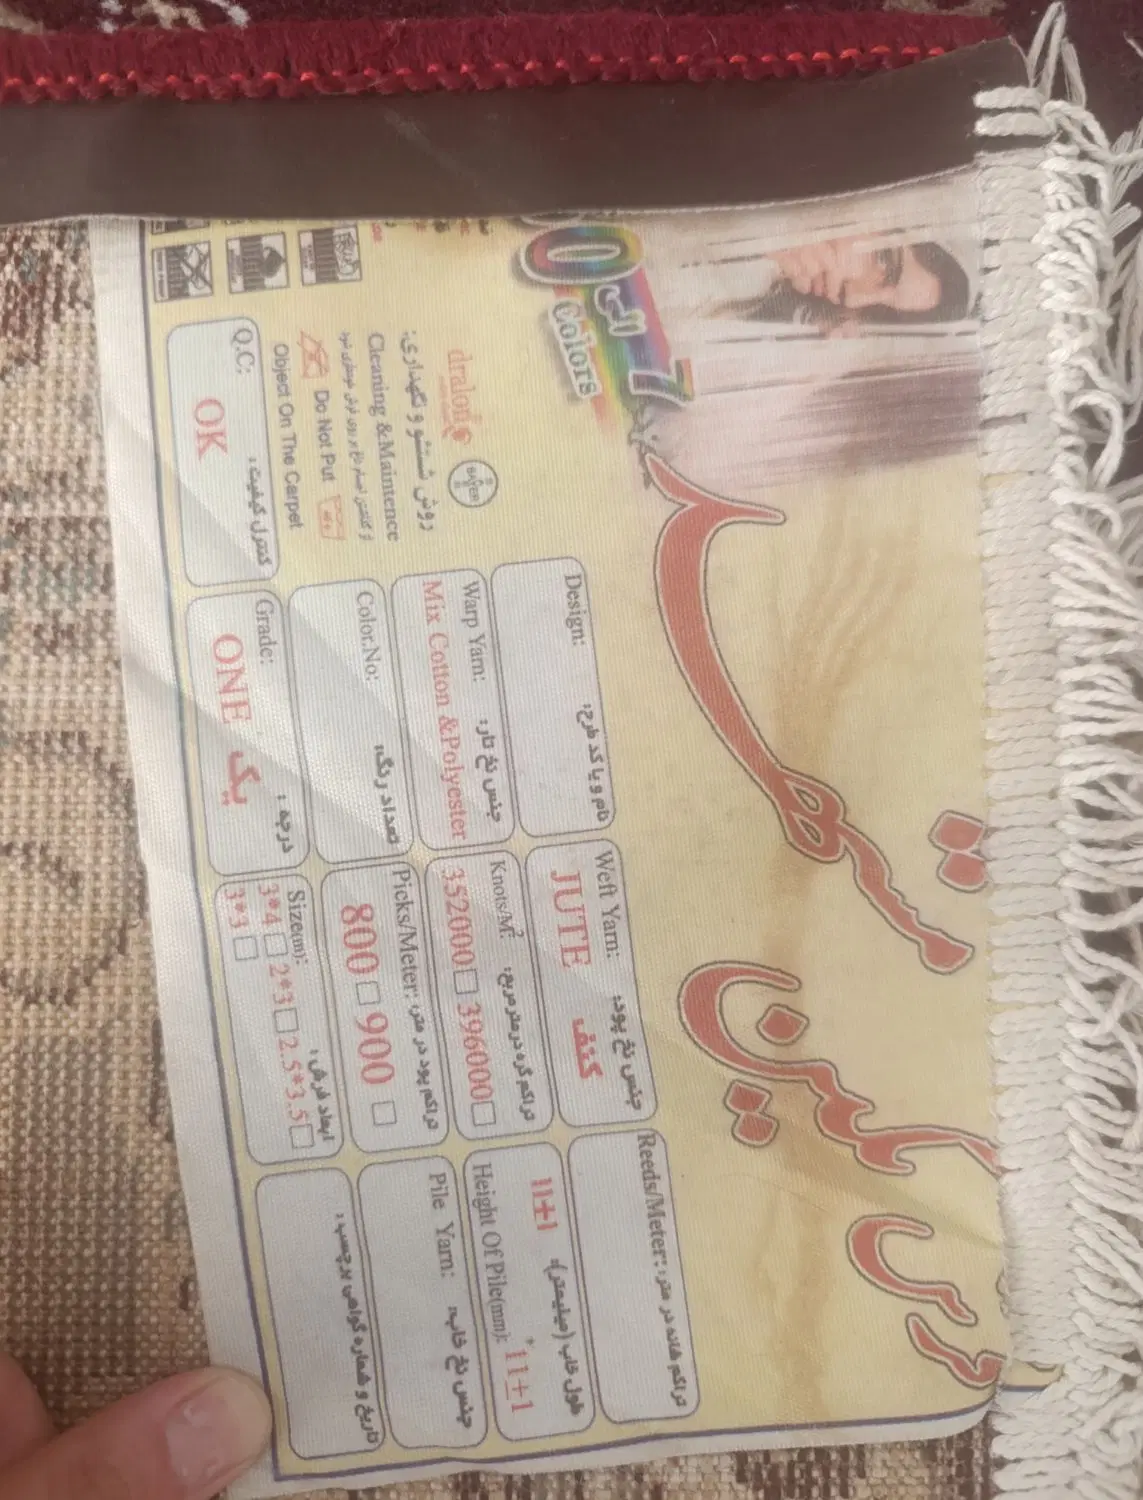 Colors
dralon
BAYER
روش شستشو و نگهداری:
Cleaning &Maintence
Do Not Put
Object On The Carpet
Q.C: کنترل کیفیت:
OK
Design: نام و یا کد طرح:
Warp Yarn: جنس نخ تار:
Mix Cotton &Polyester
Color.No: تعداد رنگ:
Grade: درجه:
ONE یک
Weft Yarn: جنس نخ پود:
JUTE کنف
Knots/M²: تراکم گره در متر مربع:
352000□ 396000□
Picks/Meter: تراکم پود در متر:
800□ 900□
Size(m): ابعاد فرش:
3*4□ 2*3□ 2.5*3.5□
3*3□
Reeds/Meter: تراکم شانه در متر:
11±1 طول خاب (میلیمتر):
Height Of Pile(mm): 11±1
Pile Yarn: جنس نخ خاب:
تاریخ و شماره گواهی برچسب: